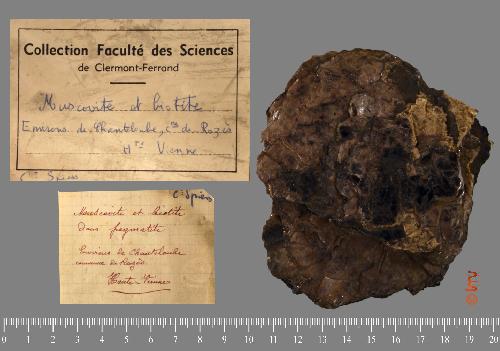 Collection Faculté des Sciences
de Clermont-Ferrand
Muscovite et biotite
Environs de Chanteloube, Cne de Razès
Hte Vienne
Con Spiess
Con Spiess
Muscovite et biotite
dans pegmatite
Environs de Chanteloube
commune de Razès
Haute-Vienne
0 1 2 3 4 5 6 7 8 9 10 11 12 13 14 15 16 17 18 19 20